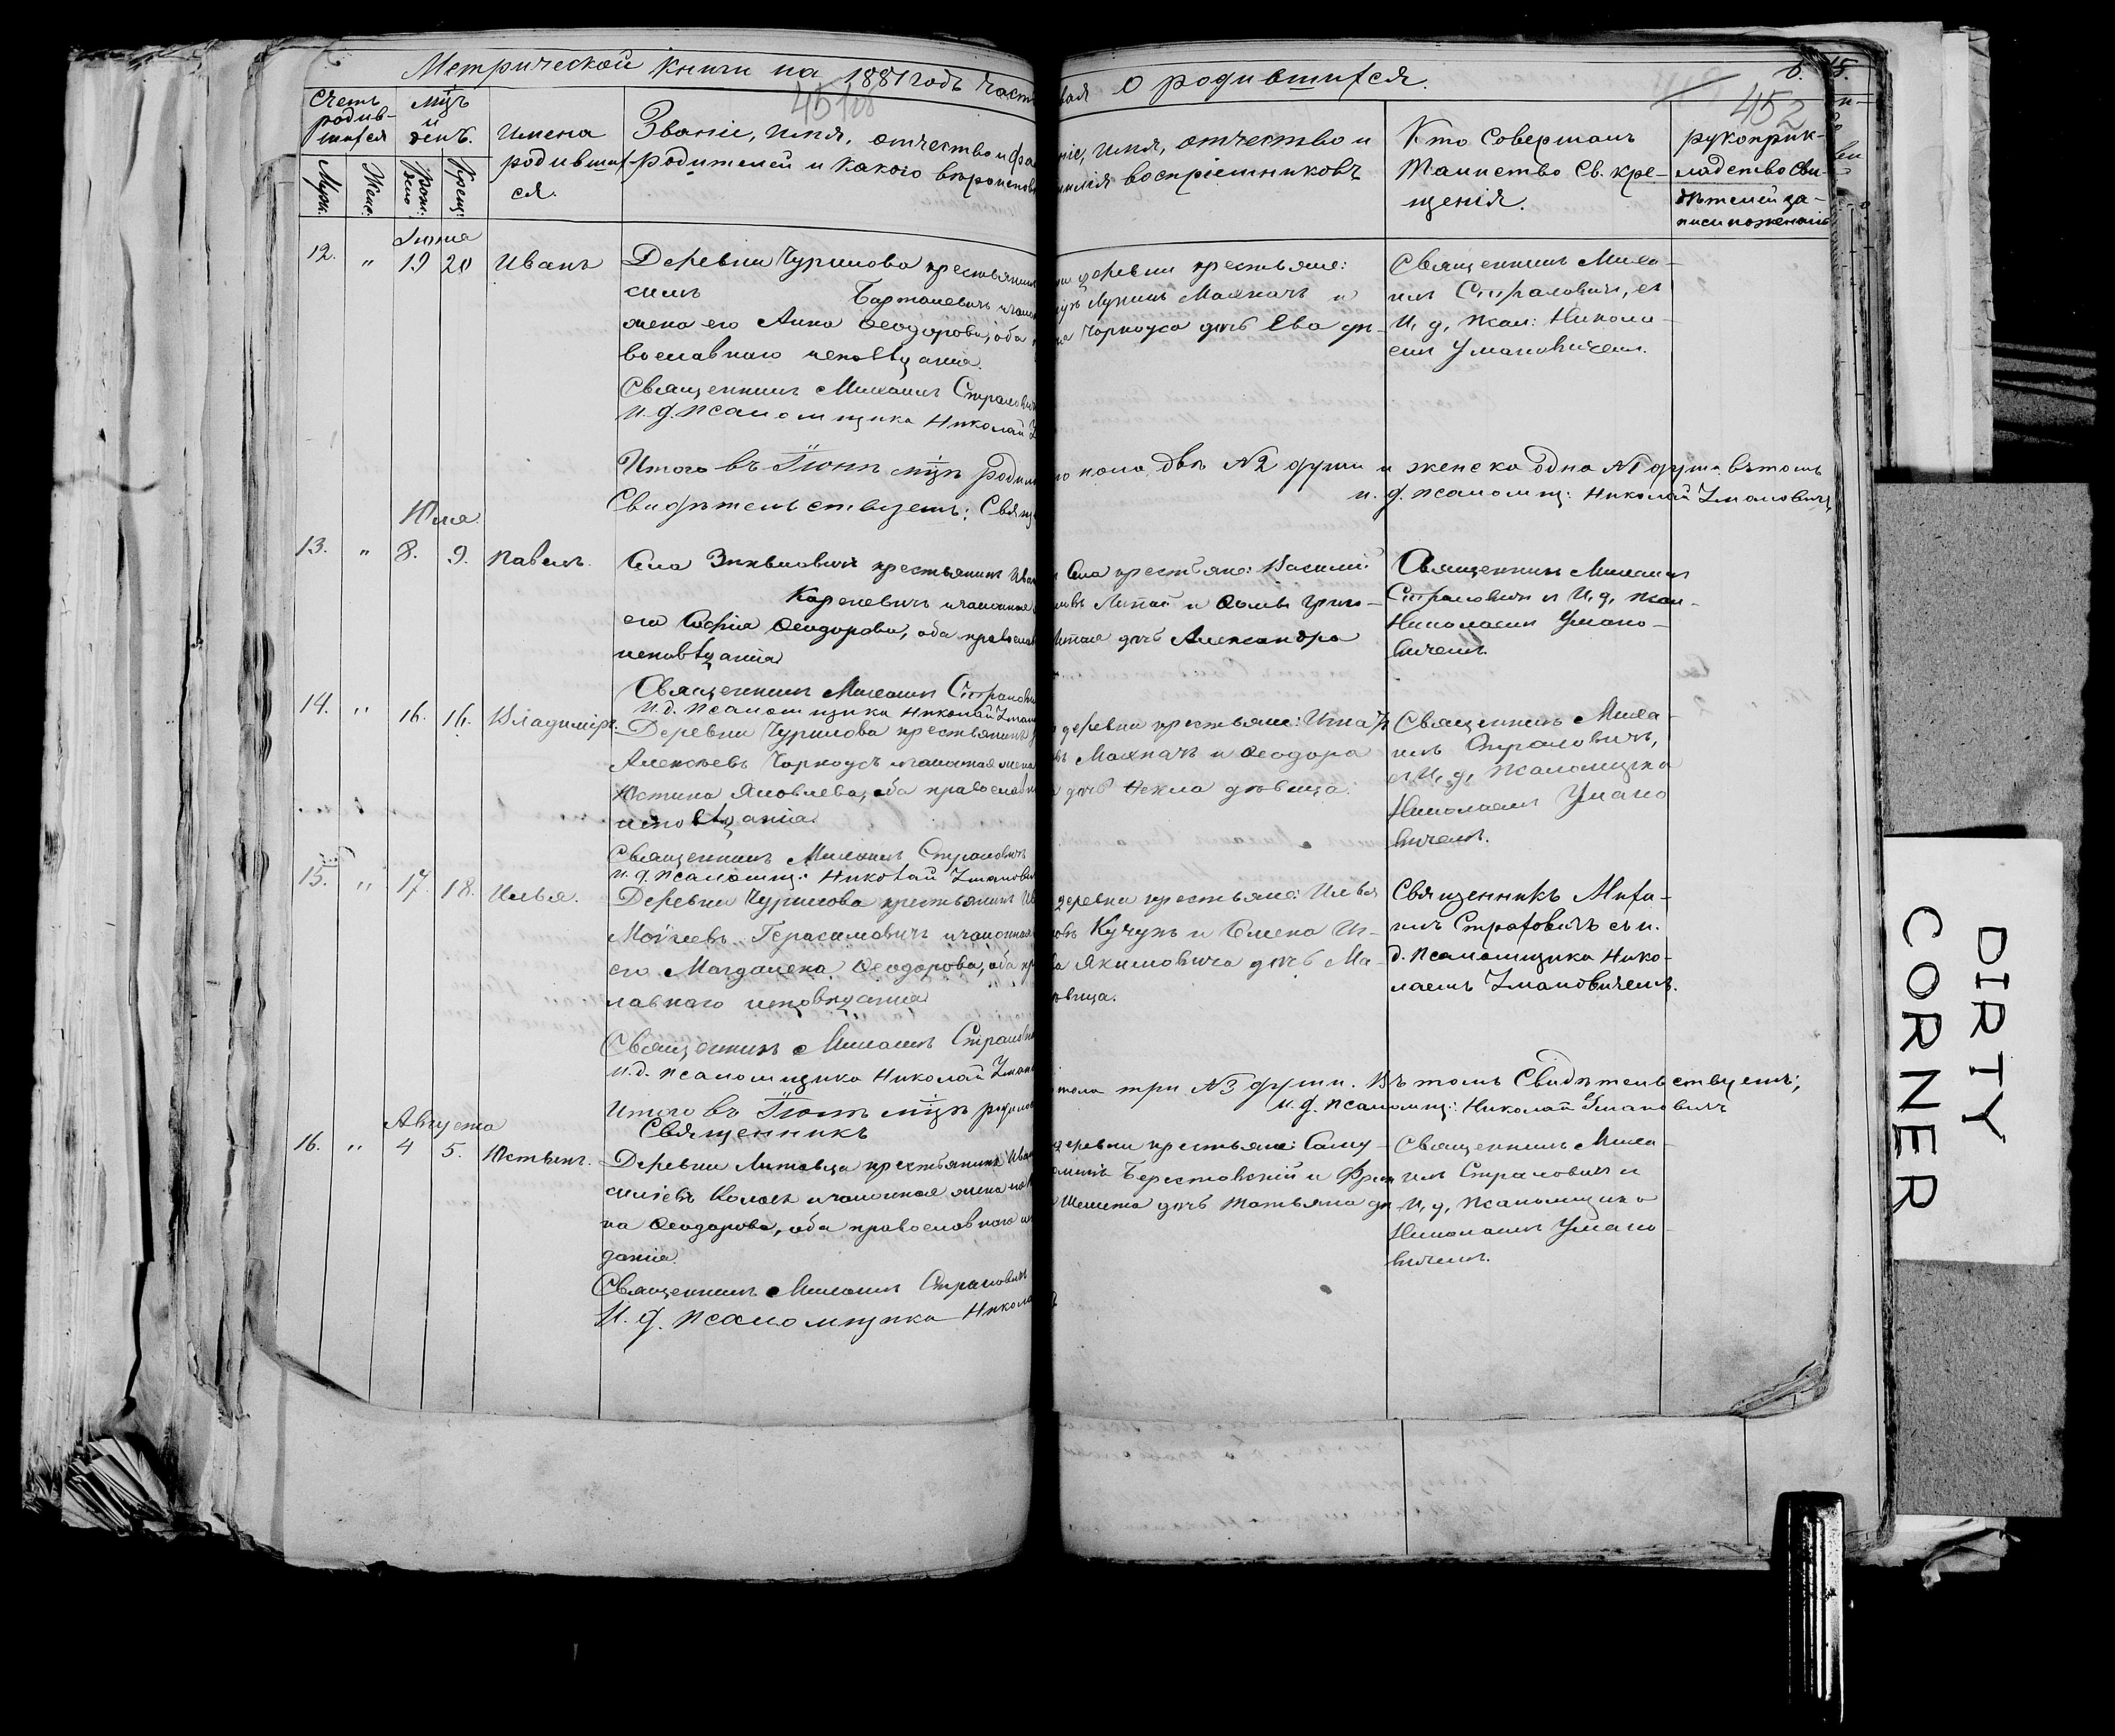 Метрической книги на 1881 годъ част
вая О родившихся.
452
Счетъ родив-шихся
мцъ и день.
Имена родившихся.
Званіе, имя, отчество и фа
родителей и какого вѣроиспов
ніе, имя, отчество и
милія воспріемниковъ
Кто совершалъ
таинство Св. кре-
щенія.
рукоприк-
ладство сви-
дѣтелей за-
писи по желанію
Муж.
Жен.
Рожденія
Крещ.
Іюня
12. " 19 20 Иванъ
Деревни Чурилова крестьянинъ
Бартошевичъ и закон
жена его Анна Ѳеодорова, оба
вославнаго исповѣданія.
Священникъ Михаилъ Страхович
И. д. псаломщика Николай
ой деревни крестьяне:
Лукинъ Махначъ и
Чорноуса дочь Ева дѣ-
Священникъ Миха-
илъ Страховичъ, съ
И. д. псал: Никола-
емъ Умановичемъ.
Итого въ Іюнѣ мцѣ родил
но пола двѣ №2 души и женска одна №1 душа въ томъ
Свидѣтельствуетъ: Свящ
и. д. псаломщ: Николай Умановичъ
Юля
13. " 8. 9. Павелъ.
Села крестьянинъ Иван
Карпевичъ и законная
его Софія Ѳеодорова, оба правосла
исповѣданія
Священникъ Михаилъ Страхови
И. д. псаломщика Николай Уман
Села крестьяне: Василій
Липай и Григо-
дочь Александра
Священникъ Михаилъ
Страховичъ и И. д. псал-
Николаемъ Умано-
вичемъ.
14. " 16. 16. Владиміръ.
Деревни Чурилова крестьянинъ
Алексѣевъ Чорноусъ и законная жена
Юстина Яковлева, оба православн
исповѣданія.
Священникъ Михаилъ Страховичъ
И. д. псаломщ: Николай Уманови
деревни крестьяне: Игнатъ
въ Махначъ и Ѳеодора
дочь Ѳекла дѣвица.
Священникъ Миха-
илъ Страховичъ,
съ И. д. псаломщика
Николаемъ Умано
вичемъ.
15. " 17. 18. Илья.
Деревни Чурилова крестьянинъ Ив
Моѵсеевъ Герасимовичъ и законная
его Магдалена Ѳеодорова, оба пр
лавнаго исповѣданія
Священникъ Михаилъ Страхови
И. д. псаломщика Николай Уман
деревни крестьяне: Илья
овъ Кучукъ и Елена Иг-
Якимовича дочь Ма-
ѣвица.
Священникъ Миха-
илъ Страховичъ съ и.
д. псаломщика Нико-
лаемъ Умановичемъ.
Итого въ Іюлѣ мцѣ родилос
пола три №3 души. Въ томъ Свидѣтельствуетъ;
Священникъ
И. д. псаломщ: Николай Умановичъ
Августа
16. " 4 5. Юстинъ.
Деревни Литовца крестьянинъ Иван
силіевъ и законная жена его
на Ѳеодорова, оба православнаго и
данія.
Священникъ Михаилъ Страховичъ
И. д. псаломщика Никола
деревни крестьяне: Саму-
Берестовскій и
Шешета дочь Татьяна дѣ
Священникъ Миха-
илъ Страховичъ и
И. д. псаломщика
Николаемъ Умано-
вичемъ.
DIRTY
CORNER